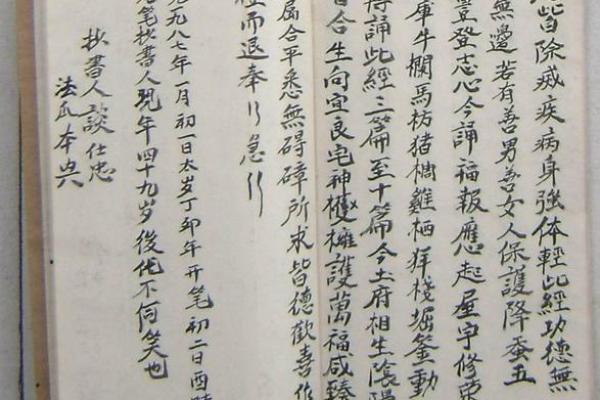 皆除滅疾病身強体輕此經功德無
無邊若有善男善女人保護降蚕五
豊登志心今誦福報應起屋宇修
庫牛欄馬枋猪椆雞栖羊栈堀釜動
持誦此經三篇至十篇今土府相生陰陽
合生向宜良宅神擁護萬福咸臻
属合平悉無碍障所求皆德歡喜作
而退奉行急行
九八七年一月初一日太岁丁卯年开笔初二日酉時
笔抄書人現年四十九岁後代不何笑也
抄書人談仕忠
法